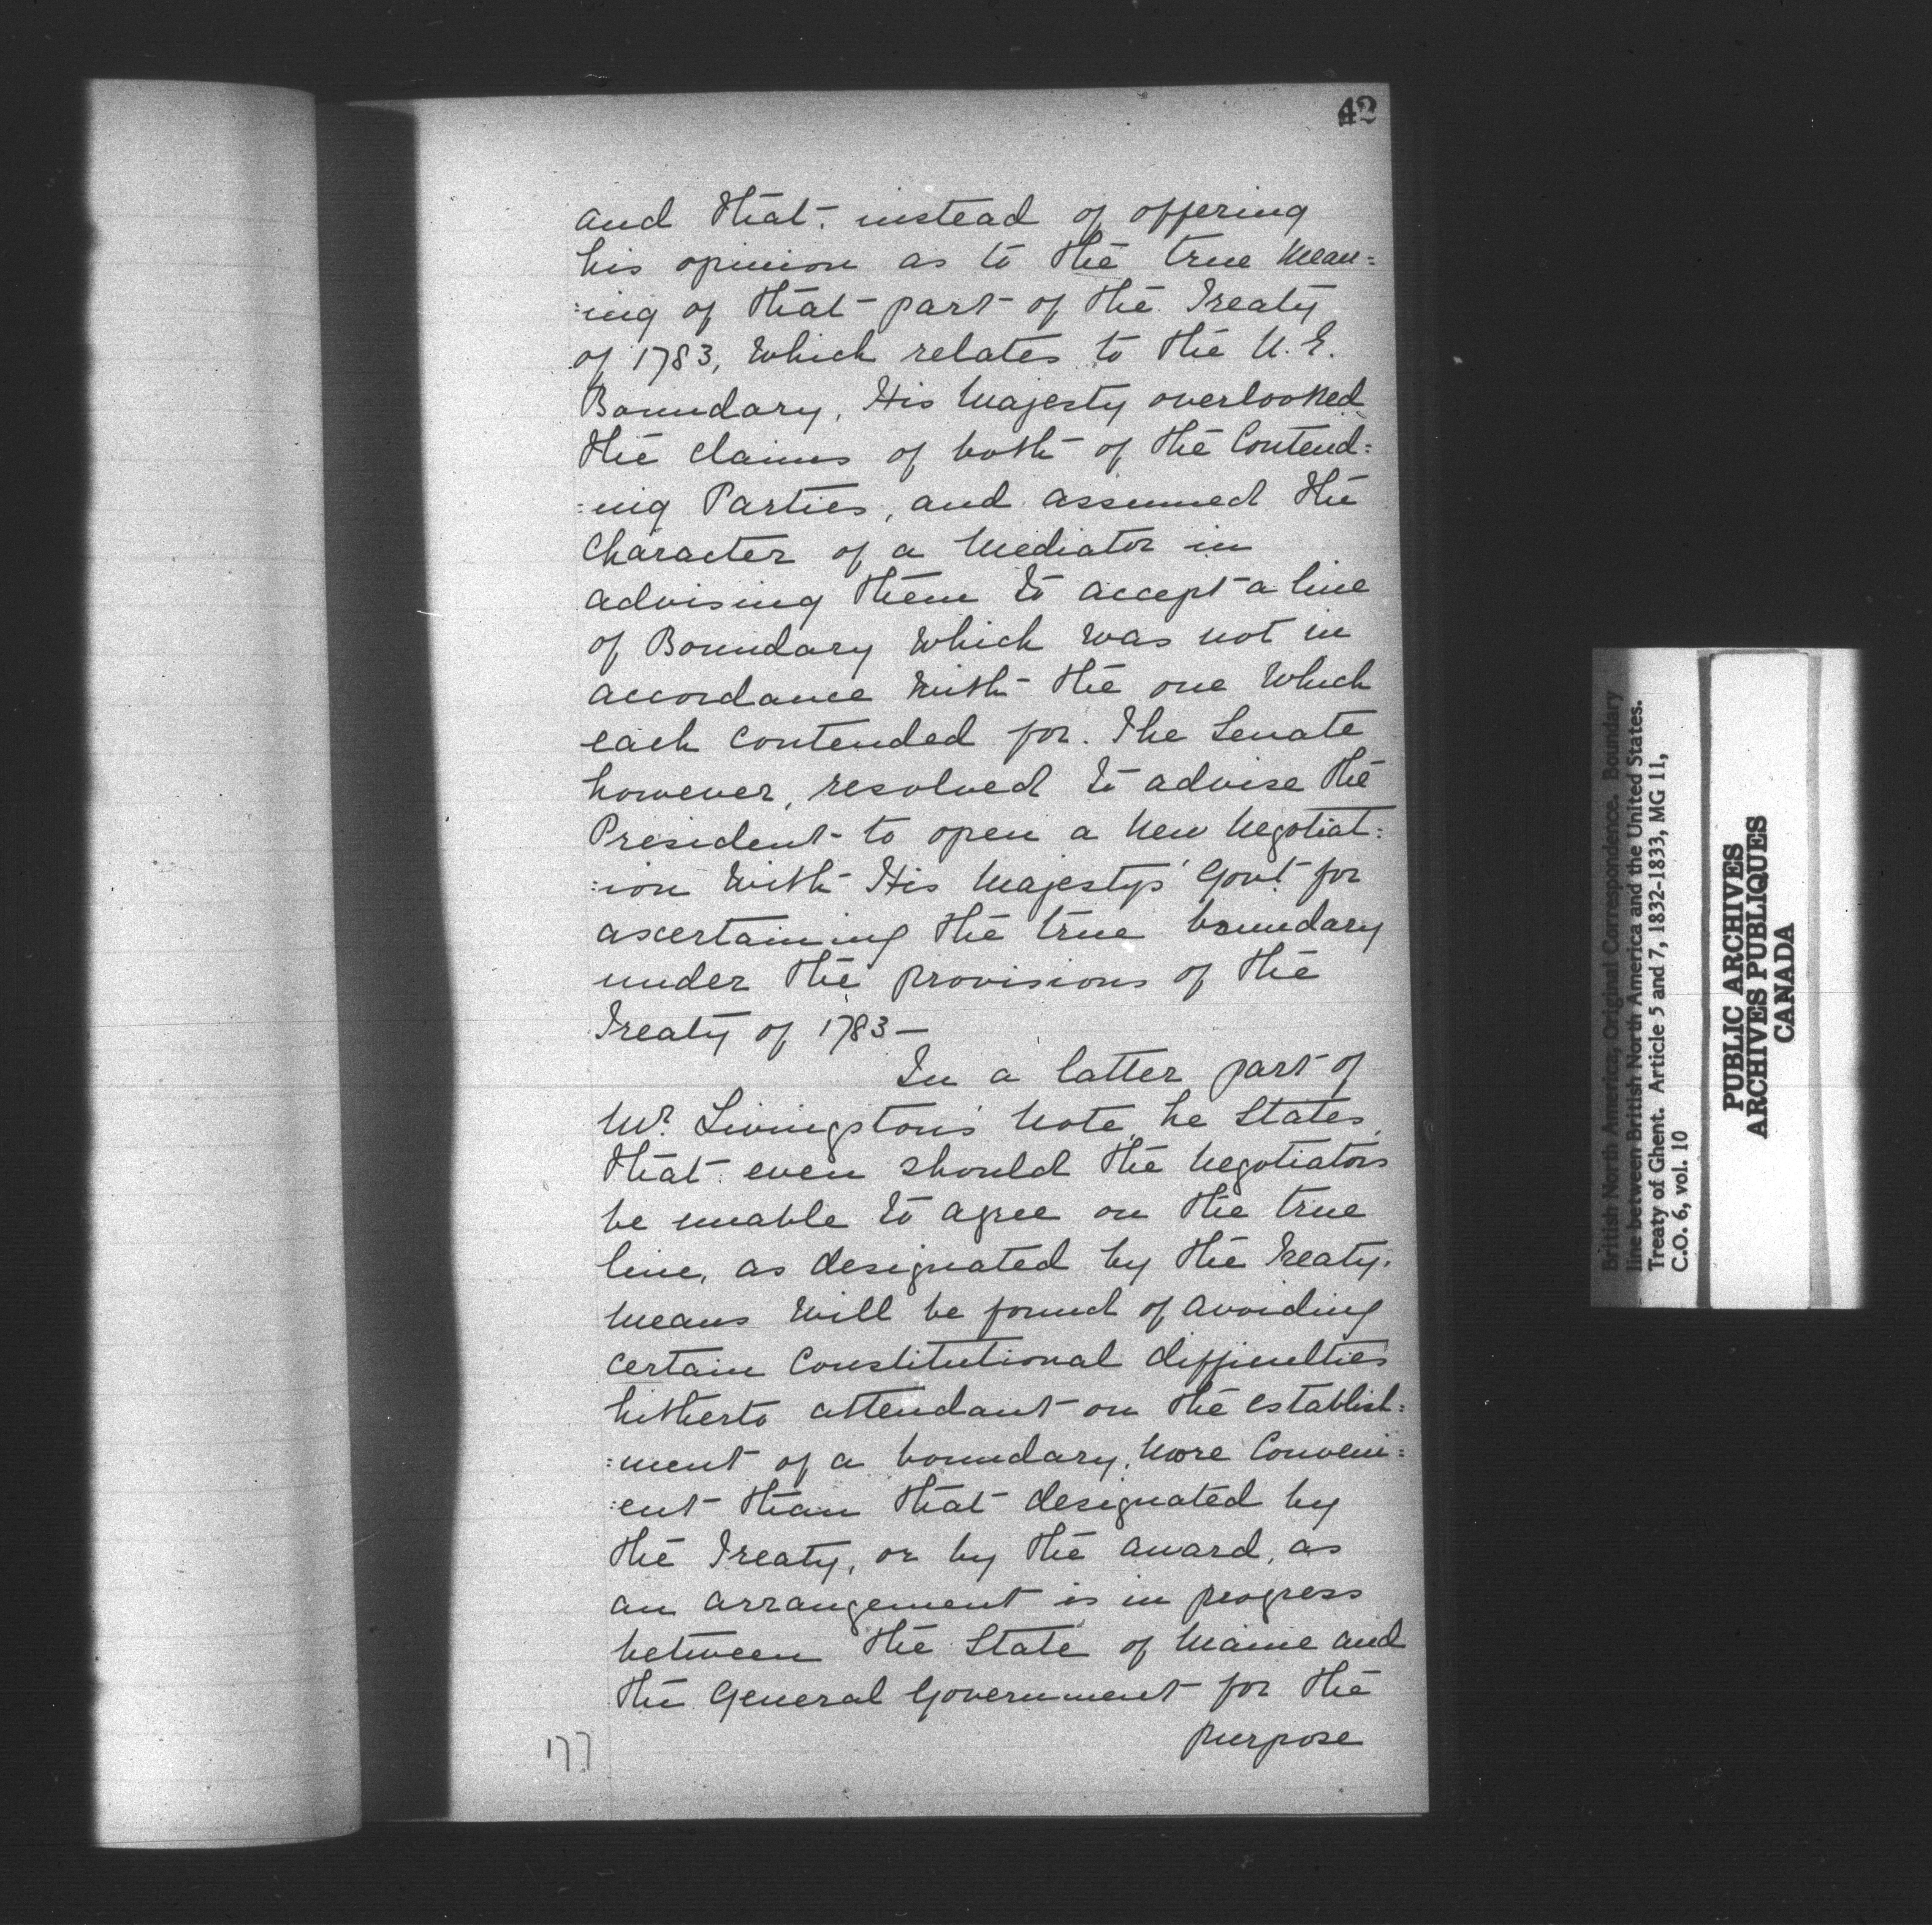 42
and that instead of offering
his opinion as to the true mean=
:ing of that part of the Treaty
of 1783, which relates to the N. E.
Boundary, His Majesty overlooked
the claims of both of the Contend=
:ing Parties, and assumed the
Character of a Mediator in
advising them to accept a line
of Boundary which was not in
accordance with the one which
each contended for. The Senate
however, resolved to advise the
President to open a New Negotiat=
:ion with His Majesty's Govt for
ascertaining the true boundary
under the provisions of the
Treaty of 1783—
In a latter part of
Mr. Livingston's Note, he States,
that even should the Negotiators
be unable to agree on the true
line, as designated by the Treaty,
Means will be found of avoiding
certain Constitutional difficulties
hitherto attendant on the establish=
:ment of a boundary, More Conveni=
:ent than that designated by
the Treaty, or by the award, as
an arrangement is in progress
between the State of Maine and
the General Government for the
purpose
177
British North America, Original Correspondence. Boundary
line between British North America and the United States.
Treaty of Ghent. Article 5 and 7, 1832-1833, MG 11,
C.O. 6, vol. 10
PUBLIC ARCHIVES
ARCHIVES PUBLIQUES
CANADA